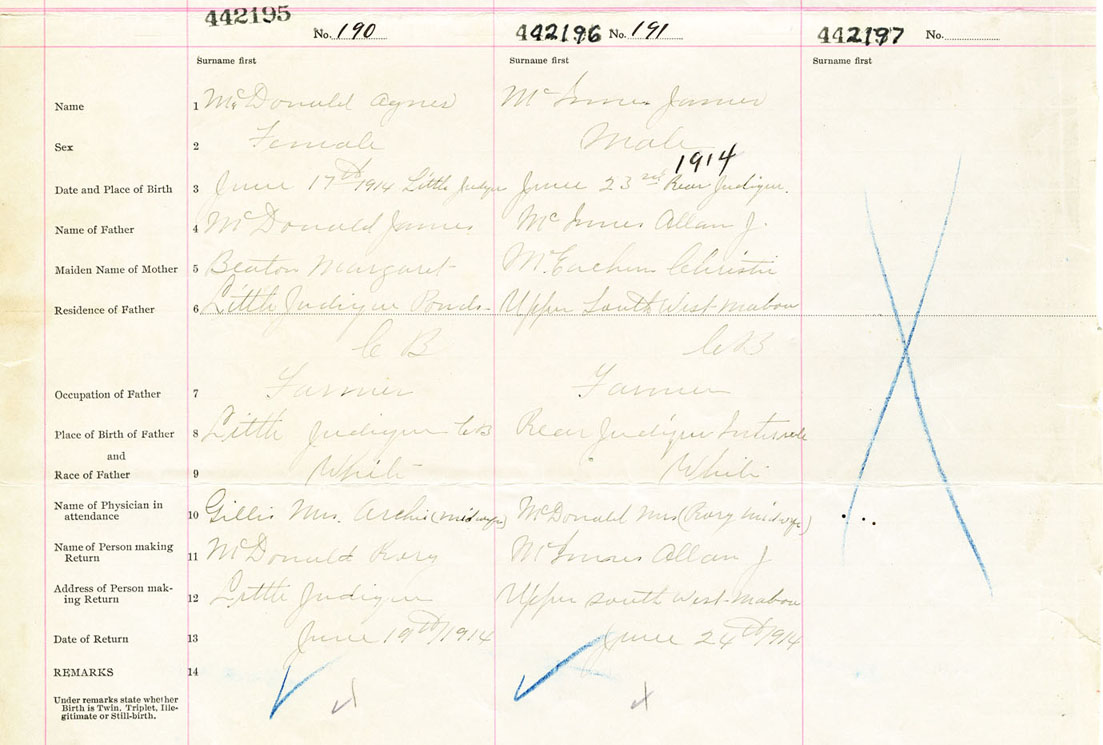 442195 No. 190 442196 No. 191 442197 No.
Surname first Surname first Surname first
Name 1 McDonald Agnes McInnes James
Sex 2 Female Male
1914
Date and Place of Birth 3 June 17th 1914 Little Judique June 23rd Rear Judique.
Name of Father 4 McDonald James McInnes Allan J.
Maiden Name of Mother 5 Beaton Margaret McEachen Christie
Residence of Father 6 Little Judique Ponds- Upper South West Mabou
C B C B
Occupation of Father 7 Farmer Farmer
Place of Birth of Father 8 Little Judique C B Rear Judique
and
Race of Father 9 White White
Name of Physician in
attendance 10 Gillis Mrs. Archie (midwife) McDonald Mrs (Rory midwife)
Name of Person making
Return 11 McDonald Rory McInnes Allan J
Address of Person mak-
ing Return 12 Little Judique Upper South West Mabou
Date of Return 13 June 19th/1914 June 24th/1914
REMARKS 14
Under remarks state whether
Birth is Twin, Triplet, Ille-
gitimate or Still-birth.